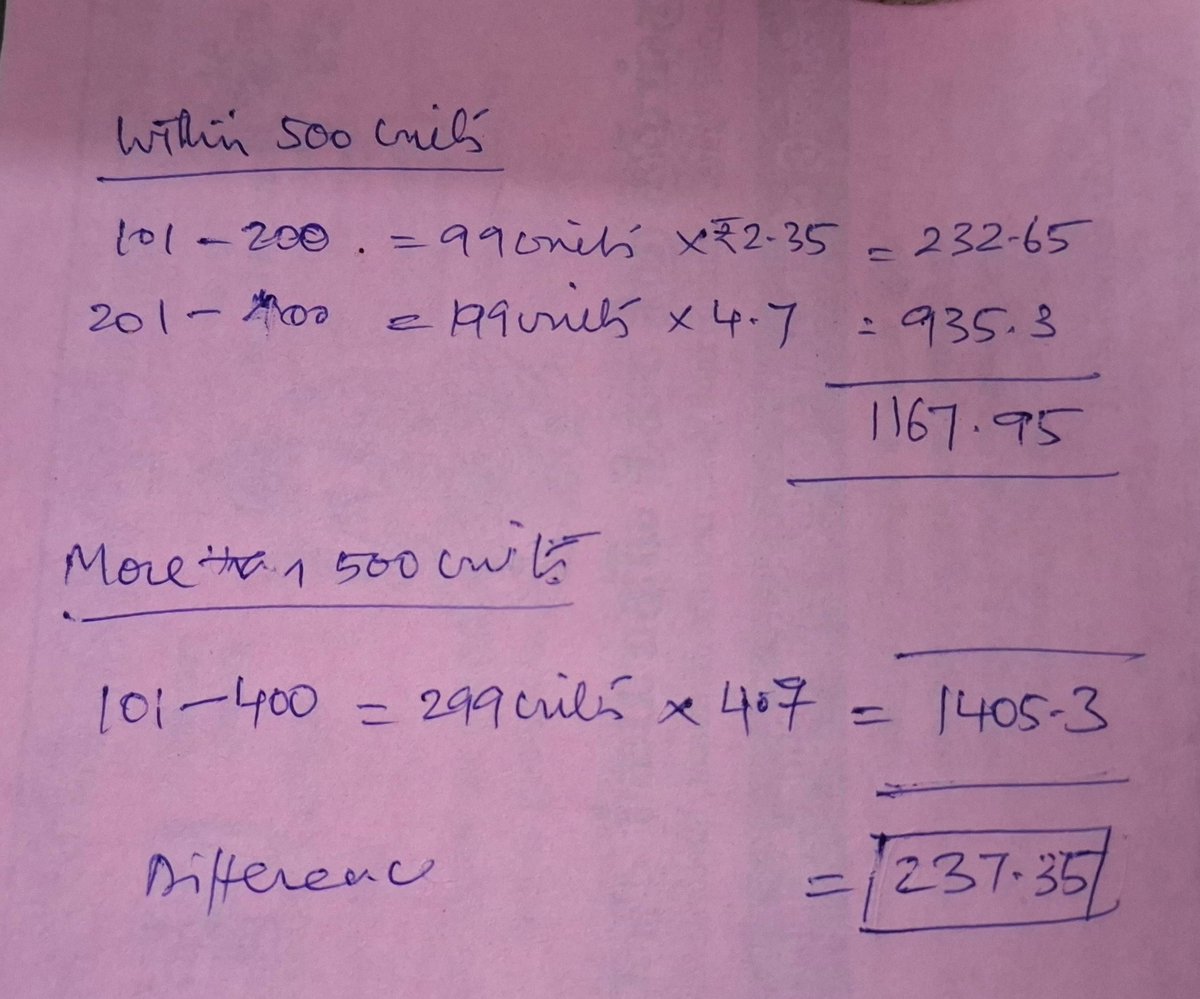 Within 500 units
101 - 200 . = 99 units x ₹2.35 = 232.65
201 - 400 = 199 units x 4.7 = 935.3
1167.95
More than 500 units
101 - 400 = 299 units x 4.7 = 1405.3
Difference = 237.35